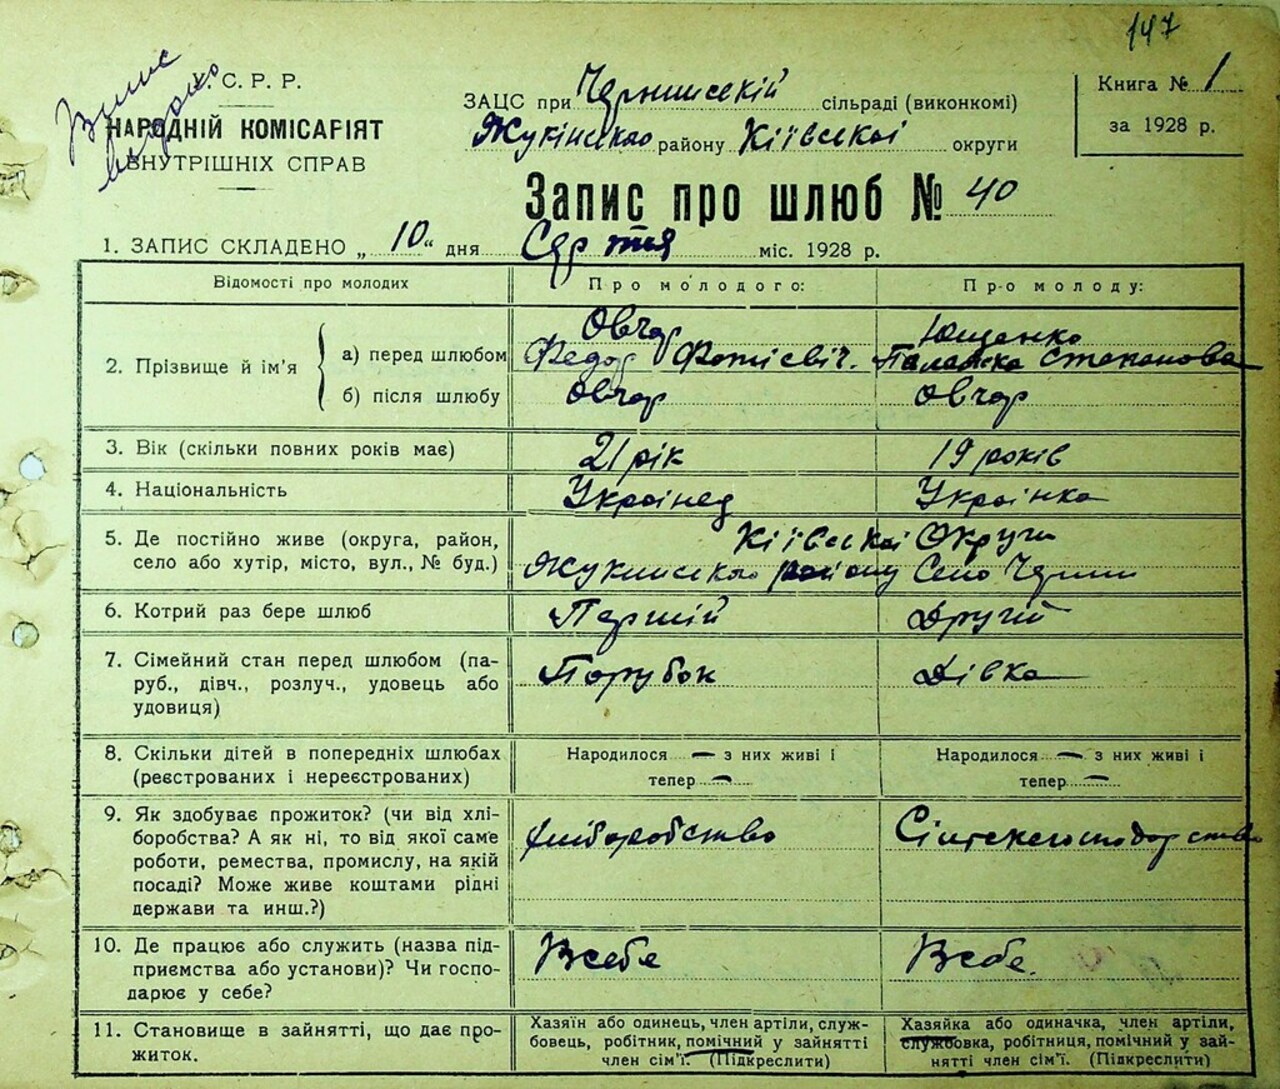 147
Випис
видано
У. С. Р. Р.
НАРОДНІЙ КОМІСАРІЯТ
ВНУТРІШНІХ СПРАВ
ЗАЦС при Чернинській сільраді (виконкомі)
Жукінського району Кіівської округи
Книга № 1
за 1928 р.
Запис про шлюб № 40
1. ЗАПИС СКЛАДЕНО „ 10 “ дня міс. 1928 р.
Відомості про молодих Про молодого: Про молоду:
2. Прізвище й ім'я
а) перед шлюбом Овчар Ющенко
Федор Фотієвіч. Палажка Степанова
б) після шлюбу Овчар Овчар
3. Вік (скільки повних років має) 21 рік 19 років
4. Національність Украінец Украінка
5. Де постійно живе (округа, район, Кіівської Округи
село або хутір, місто, вул., № буд.) Жукинського району Село Чернин
6. Котрий раз бере шлюб Першій Другій
7. Сімейний стан перед шлюбом (па- Порубок Дівка
руб., дівч., розлуч., удовець або
удовиця)
8. Скільки дітей в попередніх шлюбах Народилося — з них живі і Народилося — з них живі і
(реєстрованих і нереєстрованих) тепер — тепер —
9. Як здобуває прожиток? (чи від хлі- хліборобство
боробства? А як ні, то від якої саме
роботи, ремества, промислу, на якій
посаді? Може живе коштами рідні
держави та инш.?)
10. Де працює або служить (назва під- Всебе Всебе.
приємства або установи)? Чи госпо-
дарює у себе?
11. Становище в зайнятті, що дає про- Хазяїн або одинець, член артілі, служ- Хазяйка або одиначка, член артілі,
житок. бовець, робітник, помічний у зайнятті службовка, робітниця, помічний у зай-
член сім'ї. (Підкреслити) нятті член сім'ї. (Підкреслити)